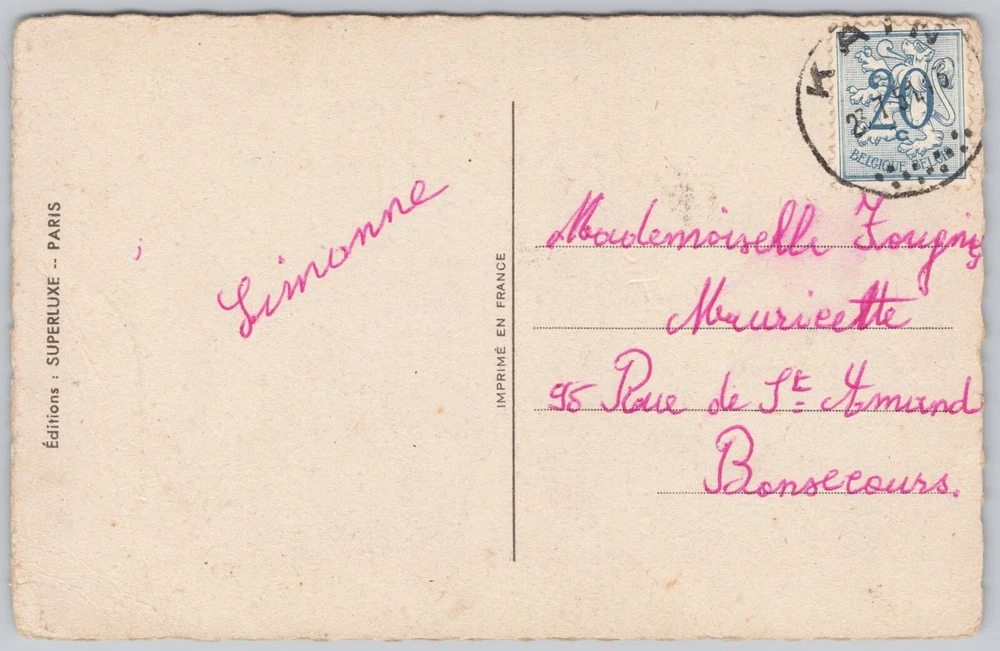 Éditions : SUPERLUXE -- PARIS
Simonne
IMPRIMÉ EN FRANCE
KAIN
20
c
BELGIQUE BELGIE
Mademoiselle
Mauricette
95 Rue de St Amand
Bonsecours.